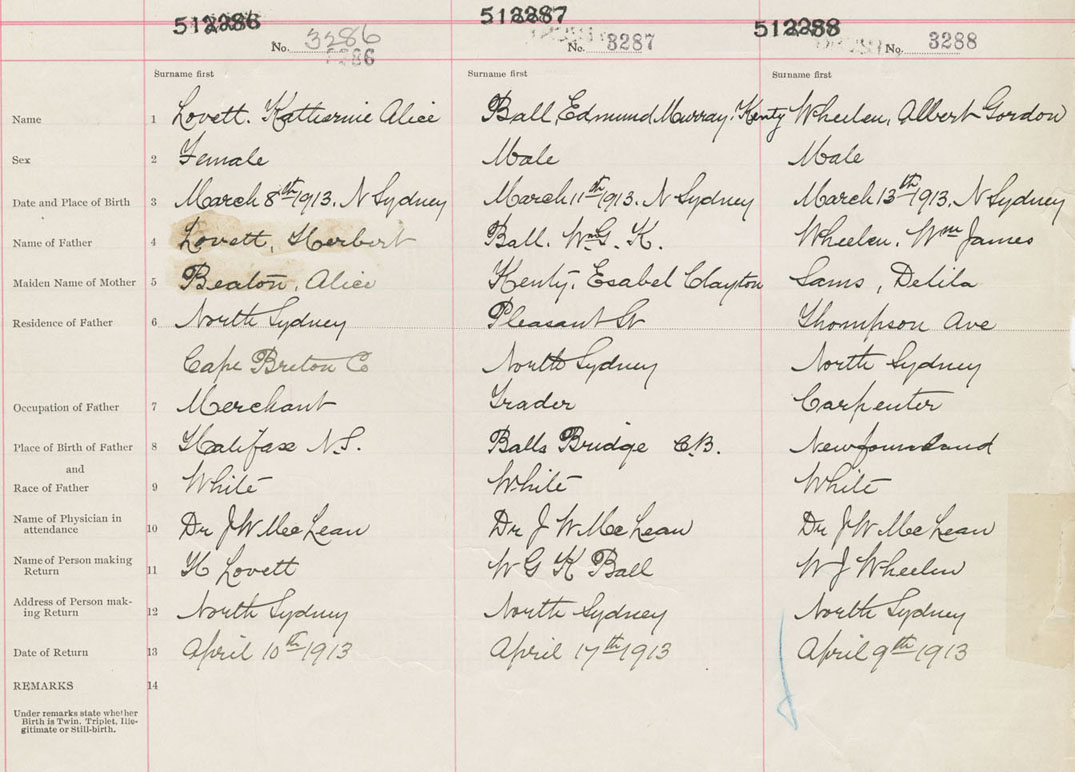 512286 512287 512288
No. 3286 No. 3287 No. 3288
3286
Surname first Surname first Surname first
Name 1 Lovett. Katherine Alice Ball, Edmund Murray. Kenty Wheelen, Albert Gordon
Sex 2 Female Male Male
Date and Place of Birth 3 March 8th 1913. N Sydney March 11th 1913. N Sydney March 13th 1913. N Sydney
Name of Father 4 Lovett, Herbert Ball. Wm G. K. Wheelen. Wm James
Maiden Name of Mother 5 Beaton, Alice Kenty. Esabel Clayton Sams, Delila
Residence of Father 6 North Sydney Pleasant St Thompson Ave
Cape Breton Co North Sydney North Sydney
Occupation of Father 7 Merchant Trader Carpenter
Place of Birth of Father 8 Halifax N.S. Balls Bridge C.B. Newfoundland
and
Race of Father 9 White White White
Name of Physician in
attendance 10 Dr J W MacLean Dr J W MacLean Dr J W MacLean
Name of Person making
Return 11 H Lovett W G K Ball W J Wheelen
Address of Person mak-
ing Return 12 North Sydney North Sydney North Sydney
Date of Return 13 April 10th 1913 April 17th 1913 April 9th 1913
REMARKS 14
Under remarks state whether
Birth is Twin, Triplet, Ille-
gitimate or Still-birth.